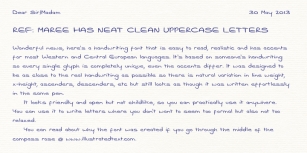 Dear Sir/Madam 30 May 2013
REF: MAREE HAS NEAT CLEAN UPPERCASE LETTERS
Wonderful news, here's a handwriting font that is easy to read, realistic and has accents
for most Western and Central European languages. It's based on someone's handwriting
so every single glyph is completely unique, even the accents differ. It was designed to
be as close to the real handwriting as possible so there is natural variation in line weight,
x-height, ascenders, descenders, etc but still looks as though it was written effortlessly
in the same pen.
It looks friendly and open but not childlike, so you can practically use it anywhere.
You can use it to write letters where you don't want to seem too formal but also not too
relaxed.
You can read about why the font was created if you go through the middle of the
compass rose @ www.illustratedtext.com